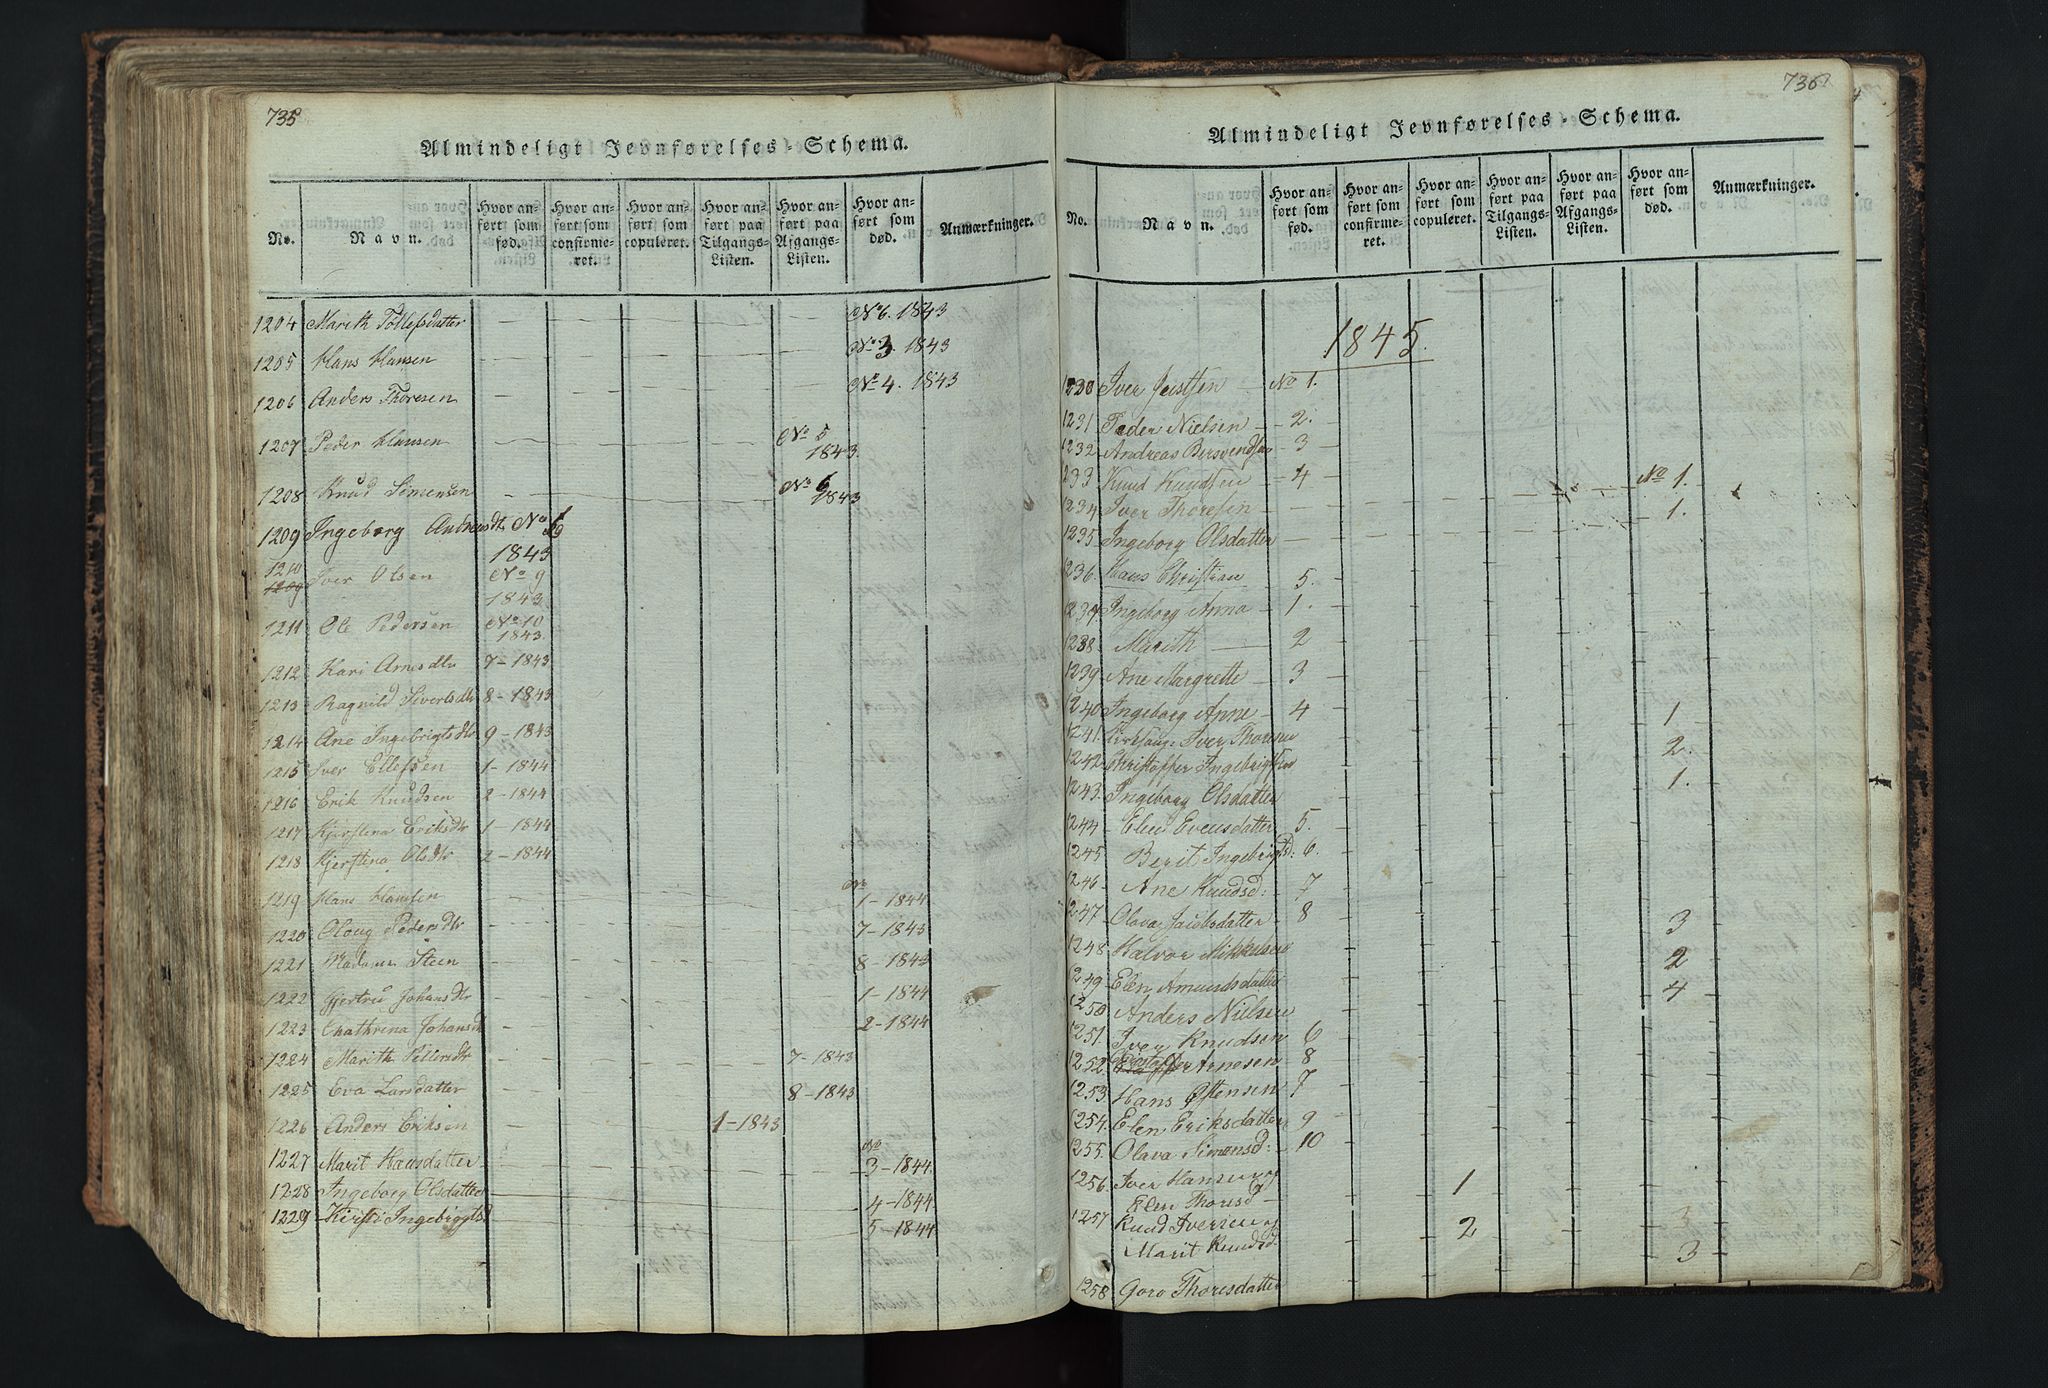 735
Almindeligt Jevnførelses-Schema.
No. Navn. Hvor anført som fød. Hvor anført som confirmeret. Hvor anført som copuleret. Hvor anført paa Tilgangs-Listen. Hvor anført paa Afgangs-Listen. Hvor anført som død. Anmærkninger.
1204 Marith Tollefsdatter No 6. 1843
1205 Hans Hansen No 3 1843
1206 Anders Thoresen No 4. 1843
1207 Peder Hansen No 5 1843.
1208 Knud Simensen No 6 1843
1209 Ingeborg Andreasdtr No 6 1843
1210 Iver Olsen No 9 1843
1211 Ole Pedersen No 10 1843.
1212 Kari Arnesdtr 7-1843
1213 Ragnild Sivertsdtr 8-1843
1214 Ane Ingebrigtsdtr 9-1843
1215 Iver Ellefsen 1-1844
1216 Erik Knudsen 2-1844
1217 Kjerstena Eriksdtr 1-1844
1218 Kjerstena Olsdtr 2-1844
1219 Hans Hansen No 1-1844
1220 Oloug Pedersdtr 7-1843
1221 Madame Steen 8-1843
1222 Gjertru Johansdtr 1-1844
1223 Chathrina Johansdtr 2-1844
1224 Marith Pedersdtr 7-1843
1225 Eva Larsdatter 8-1843
1226 Anders Eriksen 1-1843
1227 Marit Hansdatter No 3-1844.
1228 Ingeborg Olsdatter 4-1844
1229 Kirsti Ingebrigtsd 5-1844
736
Almindeligt Jevnførelses-Schema.
No. Navn. Hvor anført som fød. Hvor anført som confirmeret. Hvor anført som copuleret. Hvor anført paa Tilgangs-Listen. Hvor anført paa Afgangs-Listen. Hvor anført som død. Anmærkninger.
1845.
1230 Iver No 1.
1231 Peder Nielsen 2.
1232 Andreas Bersvendsen 3
1233 Knud Knudsen 4
1234 Iver Thoresen No 1.
1235 Ingeborg Olsdatter 1.
1236. Hans Christian 5.
1237 Ingeborg Anna 1.
1238 Marith 2
1239 Ane Margrette 3
1240 Ingeborg Anne 4
1241 Iver Thoresen 1
1242 Christopher Ingebrigtsen 2.
1243. Ingeborg Olsdatter 1.
1244 Elen Evensdatter 5.
1245 Berit Ingebrigtsd: 6.
1246 Ane Knudsd: 7
1247 Olava Jacobsdatter 8
1248 Halvor Mikkelsen 3
1249 Elen Amundsdatter 2
1250 Anders Nielsen 4
1251. Iver Knudsen 6
1252. Arnesen 8
1253 Hans Østensen 7
1254. Elen Eriksdatter 9
1255. Olava Simensd: 10
1256. Iver Hansen og
Elen Thorisd 1
1257 Knud Iversen og
Marit Knudsd. 2
1258 Goro Thoresdatter 3